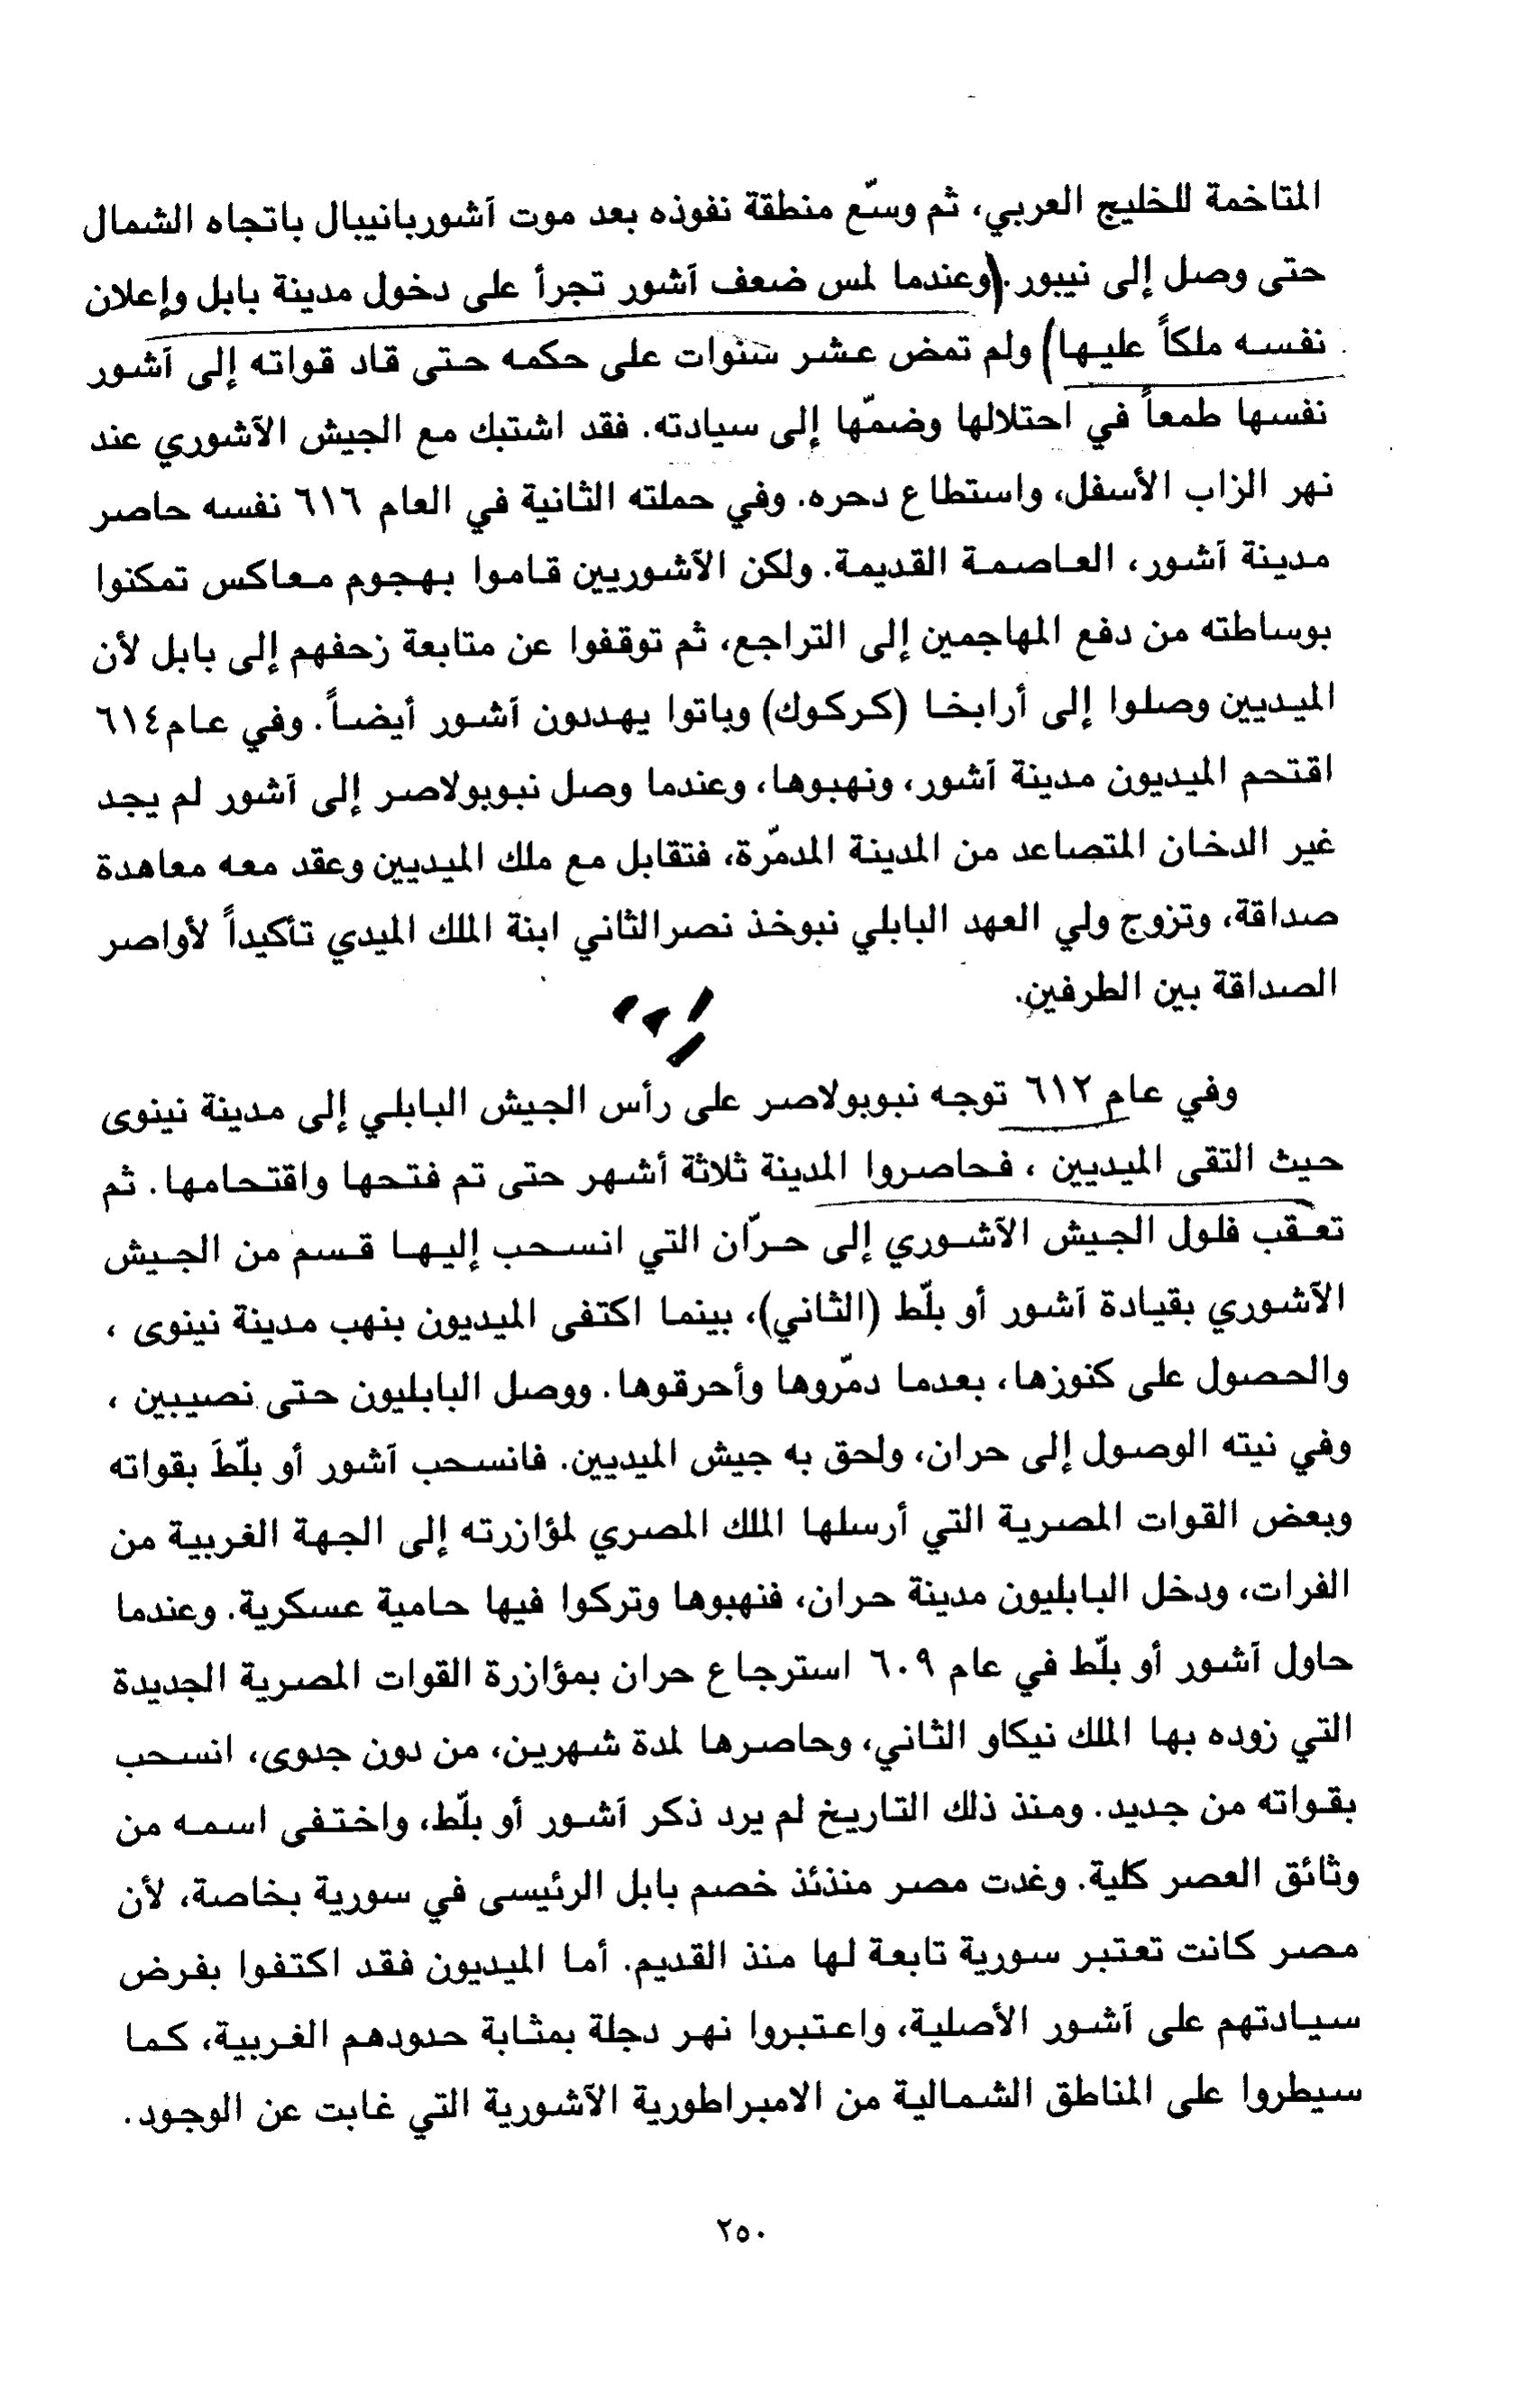 المتاخمة للخليج العربي، ثم وسّع منطقة نفوذه بعد موت آشوربانيبال باتجاه الشمال
حتى وصل إلى نيبور. (وعندما لمس ضعف آشور تجرأ على دخول مدينة بابل وإعلان
نفسه ملكاً عليها) ولم تمض عشر سنوات على حكمه حتى قاد قواته إلى آشور
نفسها طمعاً في احتلالها وضمّها إلى سيادته. فقد اشتبك مع الجيش الآشوري عند
نهر الزاب الأسفل، واستطاع دحره. وفي حملته الثانية في العام ٦١٦ نفسه حاصر
مدينة آشور، العاصمة القديمة. ولكن الآشوريين قاموا بهجوم معاكس تمكنوا
بوساطته من دفع المهاجمين إلى التراجع، ثم توقفوا عن متابعة زحفهم إلى بابل لأن
الميديين وصلوا إلى أرابخا (كركوك) وباتوا يهددون آشور أيضاً. وفي عام ٦١٤
اقتحم الميديون مدينة آشور، ونهبوها، وعندما وصل نبوبولاصر إلى آشور لم يجد
غير الدخان المتصاعد من المدينة المدمّرة، فتقابل مع ملك الميديين وعقد معه معاهدة
صداقة، وتزوج ولي العهد البابلي نبوخذ نصر الثاني ابنة الملك الميدي تأكيداً لأواصر
الصداقة بين الطرفين.
وفي عام ٦١٢ توجه نبوبولاصر على رأس الجيش البابلي إلى مدينة نينوى
حيث التقى الميديين ، فحاصروا المدينة ثلاثة أشهر حتى تم فتحها واقتحامها. ثم
تعقب فلول الجيش الآشوري إلى حرّان التي انسحب إليها قسم من الجيش
الآشوري بقيادة آشور أو بلّط (الثاني)، بينما اكتفى الميديون بنهب مدينة نينوى ،
والحصول على كنوزها، بعدما دمّروها وأحرقوها. ووصل البابليون حتى نصيبين ،
وفي نيته الوصول إلى حران، ولحق به جيش الميديين. فانسحب آشور أو بلّط بقواته
وبعض القوات المصرية التي أرسلها الملك المصري لمؤازرته إلى الجهة الغربية من
الفرات، ودخل البابليون مدينة حران، فنهبوها وتركوا فيها حامية عسكرية. وعندما
حاول آشور أو بلّط في عام ٦٠٩ استرجاع حران بمؤازرة القوات المصرية الجديدة
التي زوده بها الملك نيكاو الثاني، وحاصرها لمدة شهرين، من دون جدوى، انسحب
بقواته من جديد. ومنذ ذلك التاريخ لم يرد ذكر آشور أو بلّط، واختفى اسمه من
وثائق العصر كلية. وغدت مصر منذئذ خصم بابل الرئيسى في سورية بخاصة، لأن
مصر كانت تعتبر سورية تابعة لها منذ القديم. أما الميديون فقد اكتفوا بفرض
سيادتهم على آشور الأصلية، واعتبروا نهر دجلة بمثابة حدودهم الغربية، كما
سيطروا على المناطق الشمالية من الامبراطورية الآشورية التي غابت عن الوجود.
٢٥٠